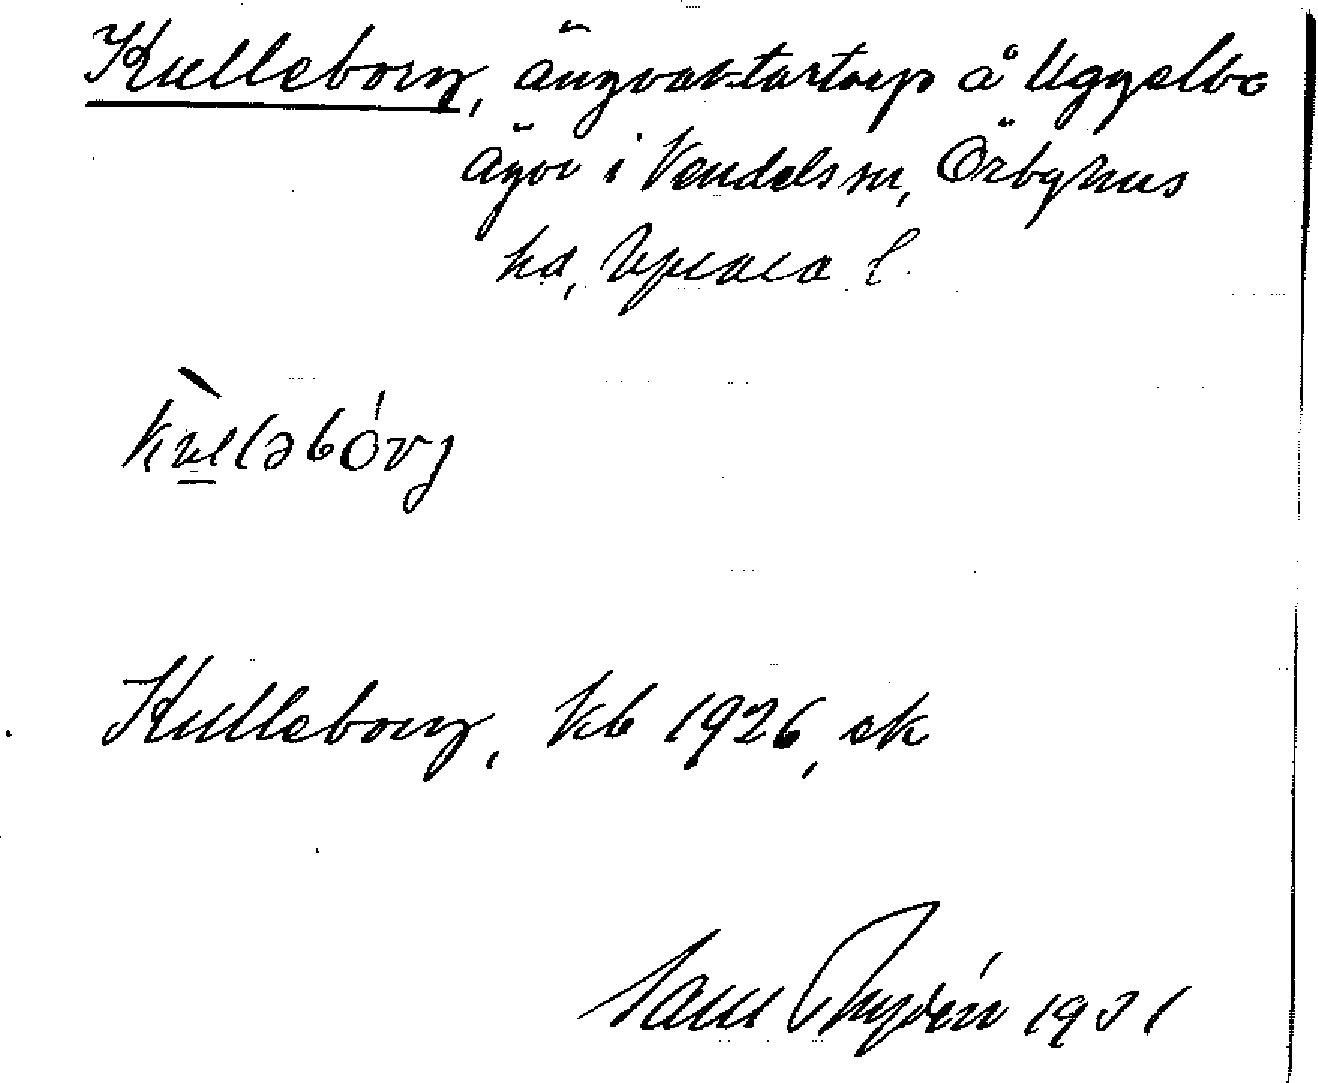 Kulleborg, ängvaktartorp å Uggelbo
ägor i Vendels sn, Örbyhus
hd, Upsala l.
kuləbórj
Kulleborg, kb 1926, ek
1931